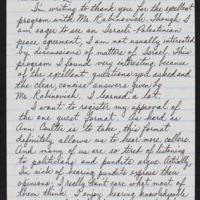 I'm writing to thank you for the excellent
program with Mr. Rabinovich. Though I
am eager to see an Israeli-Palestinian
peace agreement, I am not usually interested
in discussions of matters of Israel. This
program I found very interesting because
of the excellent questions you asked and
the clear, concise answers given by
Mr. Rabinovich. I learned a lot.
I want to register my approval of
the one guest format. As hard as
Ann Coulter is to take, this format
definitely allows us to hear more callers.
And many of us are so tired of listening
to politicians and pundits anyway. Actually
I'm sick of hearing pundits express their
opinions; I really don't care what most of
them think. I enjoy hearing knowledgeable